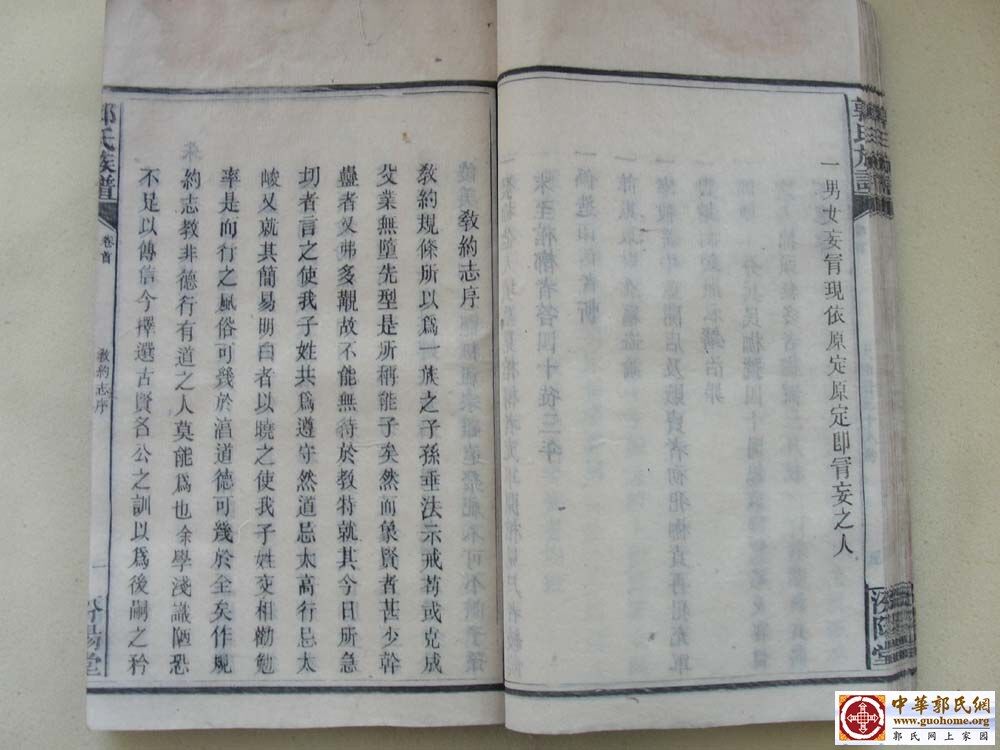 郭氏族譜
一男女妄冒現依原定原定即冒妄之人
汾陽堂
教約志序
教約規條所以爲一族之子孫垂法示戒苟或克成
父業無墮先型是所稱能子矣然而象賢者甚少幹
蠱者又弗多觀故不能無待於教特就其今日所急
切者言之使我子姓共爲遵守然道忌太高行忌太
峻又就其簡易明白者以曉之使我子姓交相勸勉
率是而行之風俗可幾於滀道德可幾於全矣作規
約志教非德行有道之人莫能爲也余學淺識陋恐
不足以傳信今擇選古賢各公之訓以爲後嗣之矜
郭氏族譜
卷首
教約志序
一
汾陽堂
中華郭氏網
www.guohome.org
郭氏網上家園